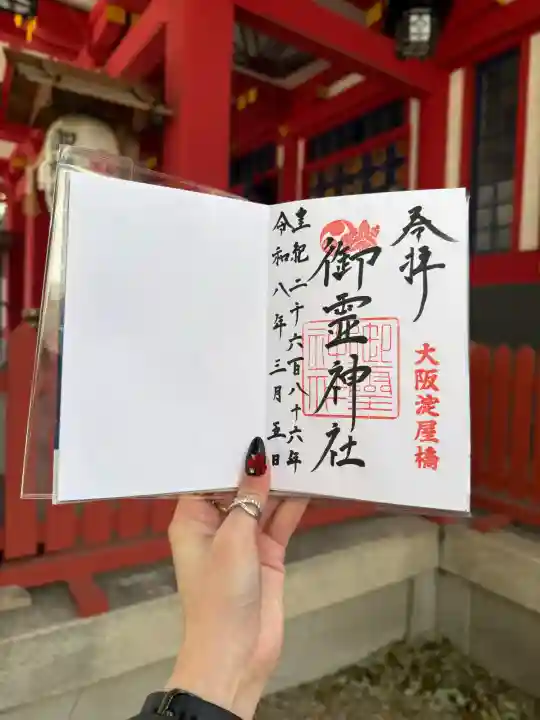 奉拝
大阪淀屋橋
御霊神社
皇紀二千六百八十六年
令和八年三月五日